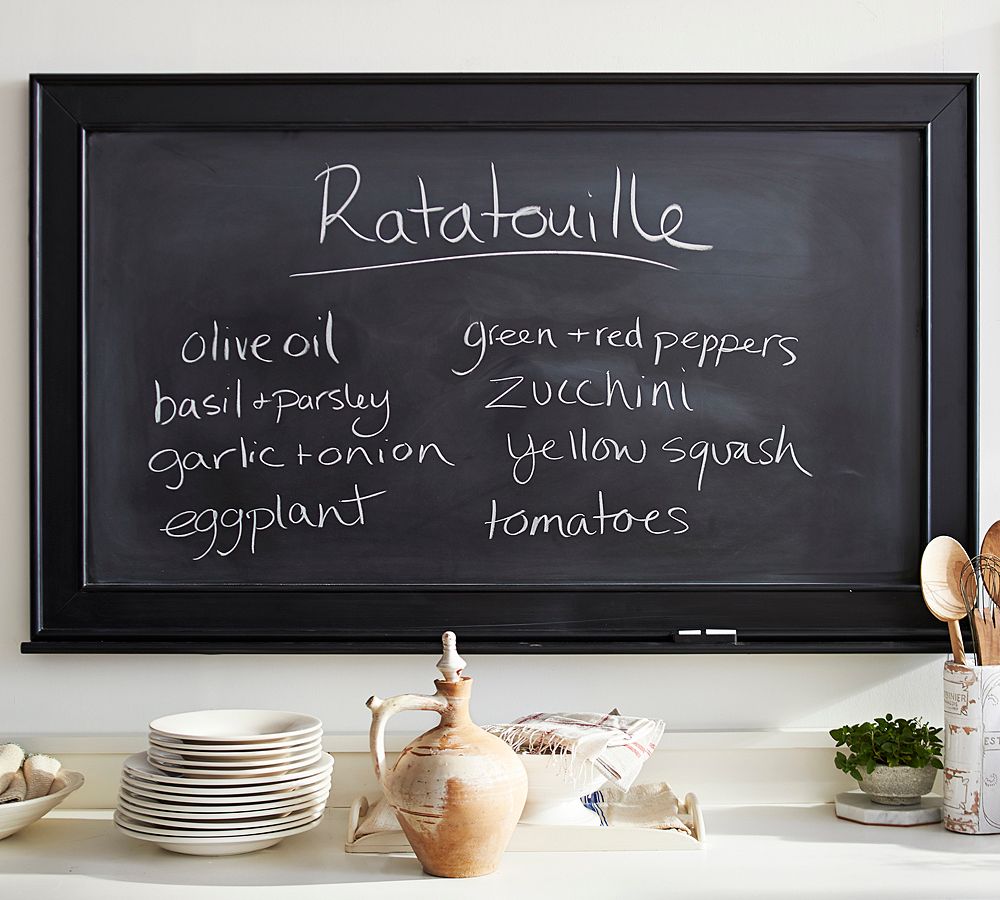 Ratatouille
olive oil
basil + parsley
garlic + onion
eggplant
green + red peppers
zucchini
yellow squash
tomatoes